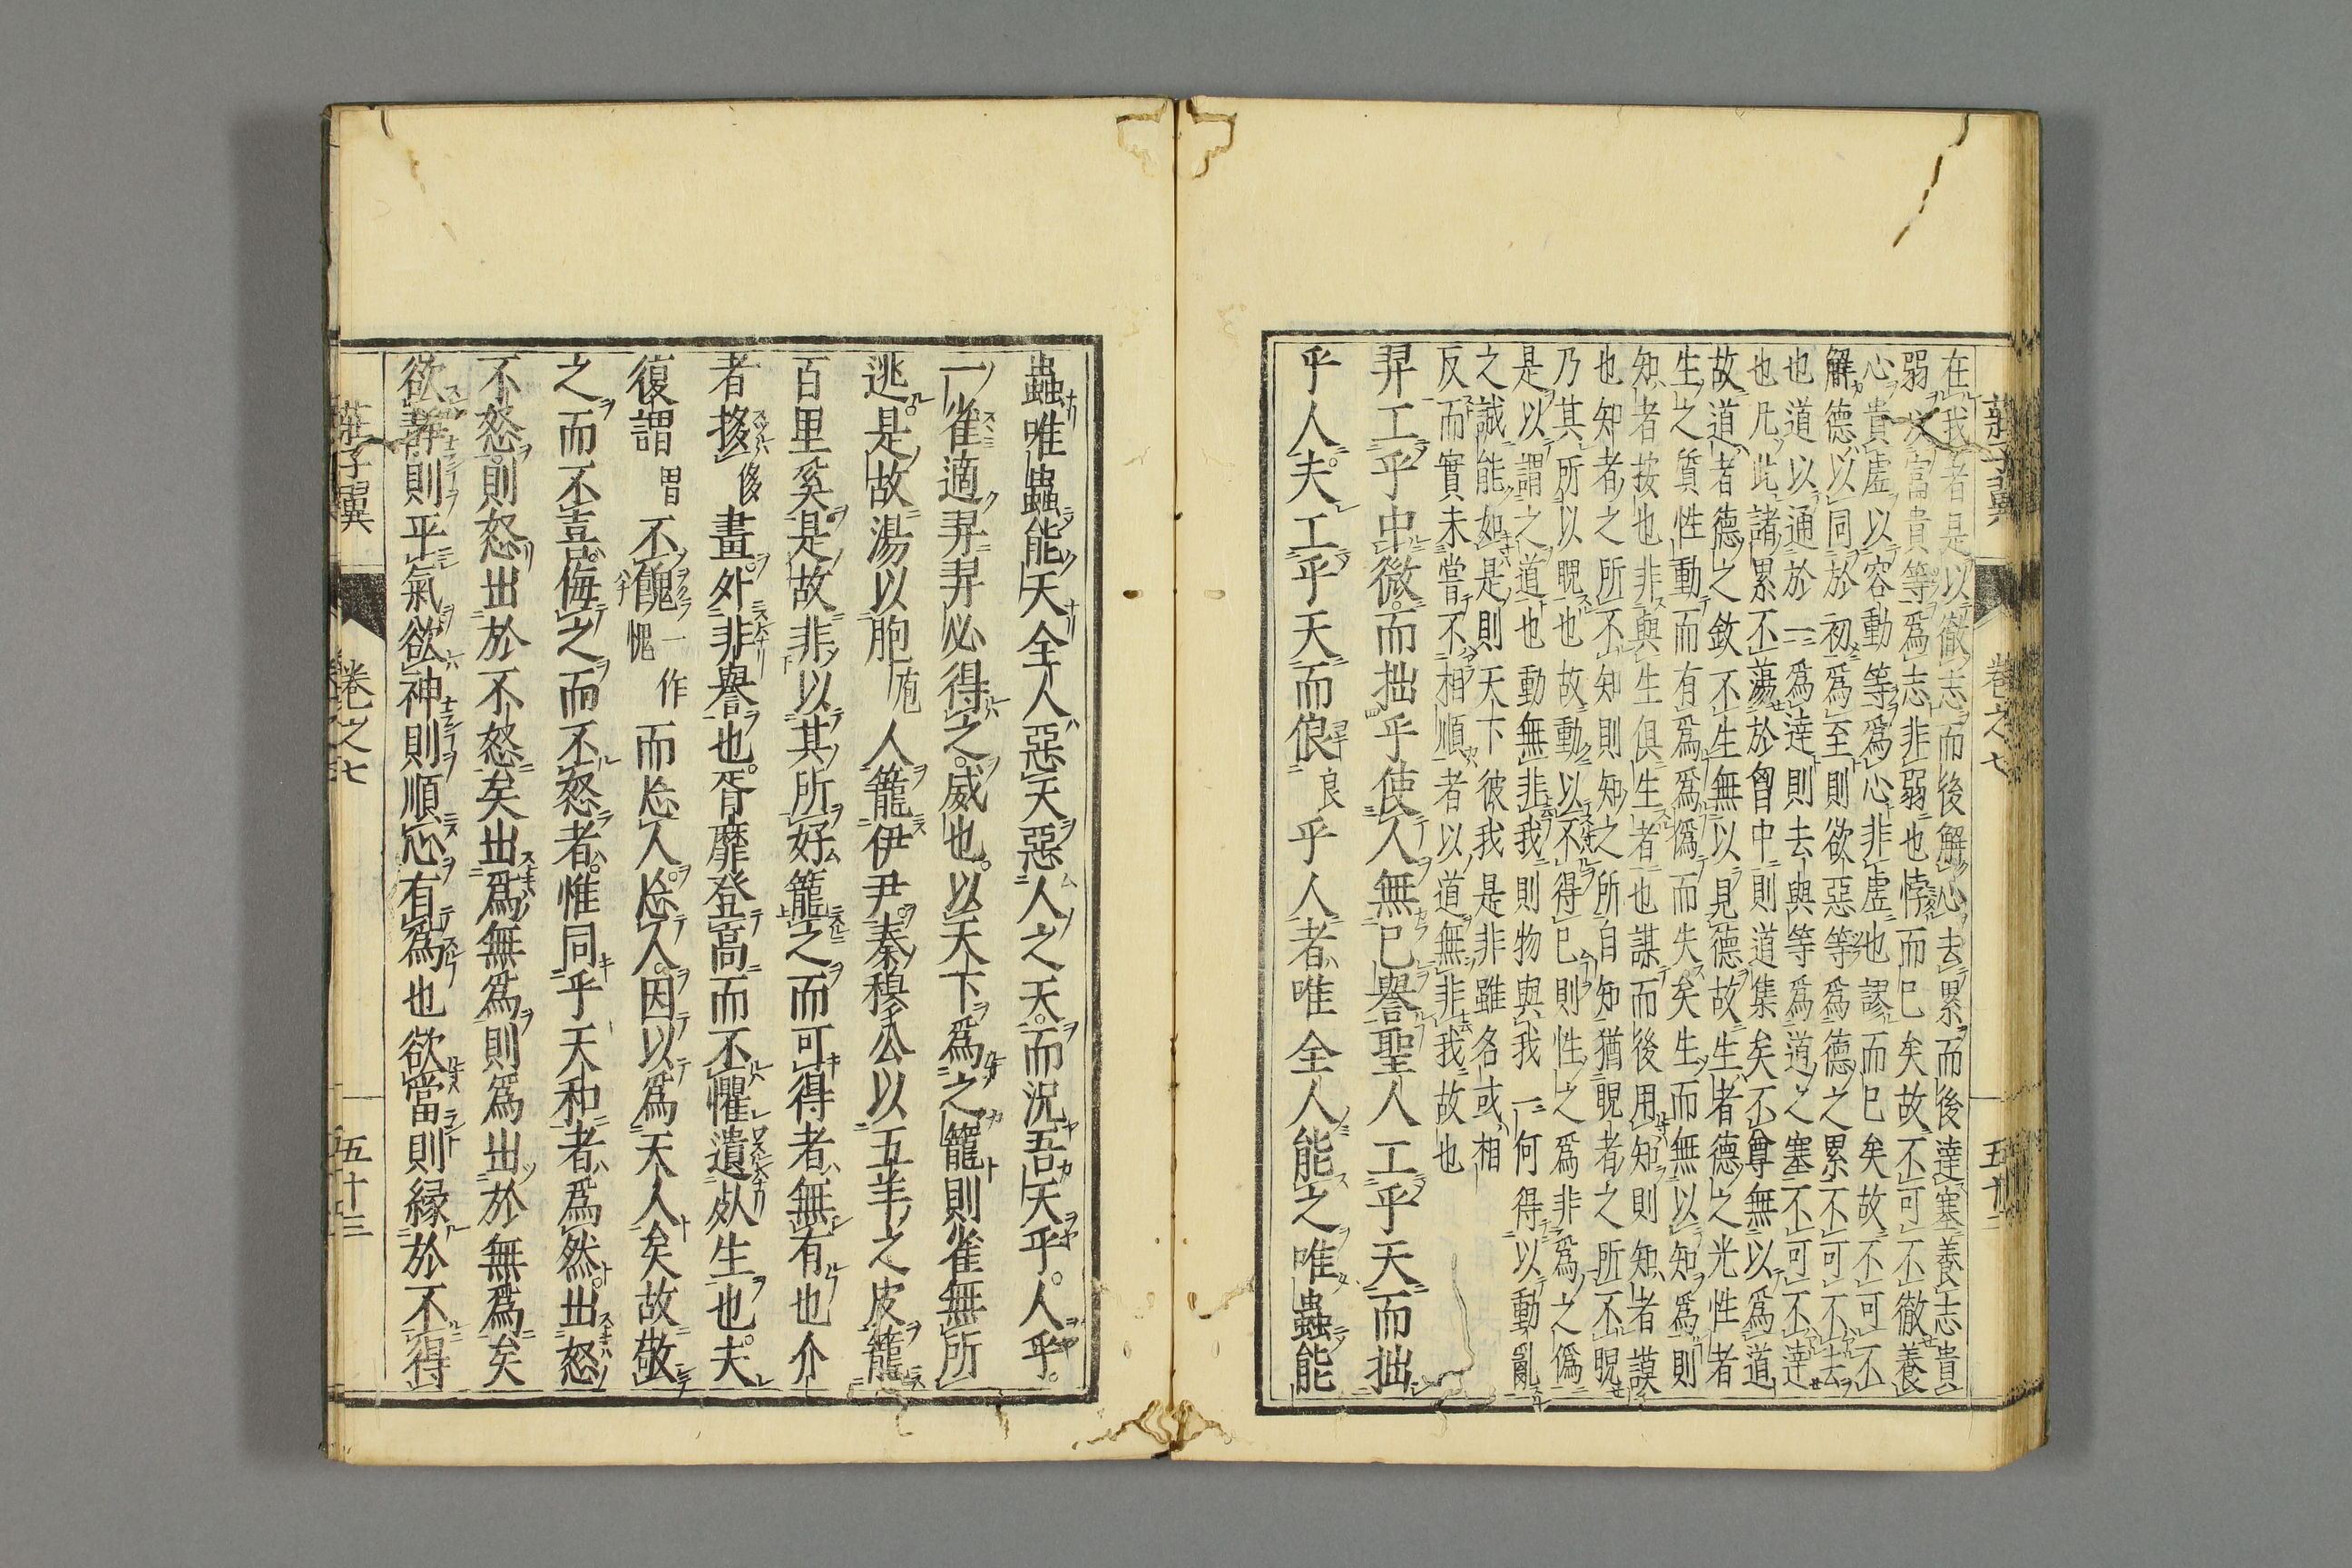 莊子翼 卷之七
在我者是以徹志而後解心去累而後達塞養志貴
弱次富貴等爲志非弱也悖而已矣故不可不徹養
心貴虚以容動等爲心非虚也謬而已矣故不可不
解德以同於初爲至則欲惡等爲德之累不可不去
也道以通於一爲達則去與等爲道之塞不可不達
也凡此諸累不蕩於胷中則道集矣不尊無以爲道
故道者德之欽不生無以見德故生者德之光性者
生之質性動而有爲爲僞而失矣生而無以知爲則
知者按也非與生俱生者也謀而後用知則知者謨
也知者之所不知則知之所自知猶睨者之所不睨
乃其所以睨也故動以不得已則性之爲非爲之僞
是以謂之道也動無非我則物與我一何得以動亂
之誠能如是則天下彼我是非雖名或相
反而實未嘗不相順者以道無非我故也
羿工乎中微而拙乎使人無已譽聖人工乎天而拙
乎人夫工乎天而俍良乎人者唯全人能之唯蟲能
蟲唯蟲能天全人惡天惡人之天而況吾天乎人乎
一雀適羿羿必得之威也以天下爲之籠則雀無所
逃是故湯以胞庖人籠伊尹秦穆公以五羊之皮籠
百里奚是故非以其所好籠之而可得者無有也介
者拸侈畫外非譽也胥靡登高而不懼遺死生也夫
復謵習不餽愧一作而忘人忘人因以爲天人矣故敬
之而不喜侮之而不怒者惟同乎天和者爲然出怒
不怒則怒出於不怒矣出爲無爲則爲出於無爲矣
欲靜則平氣欲神則順心有爲也欲當則緣於不得
莊子翼 卷之七 五十三